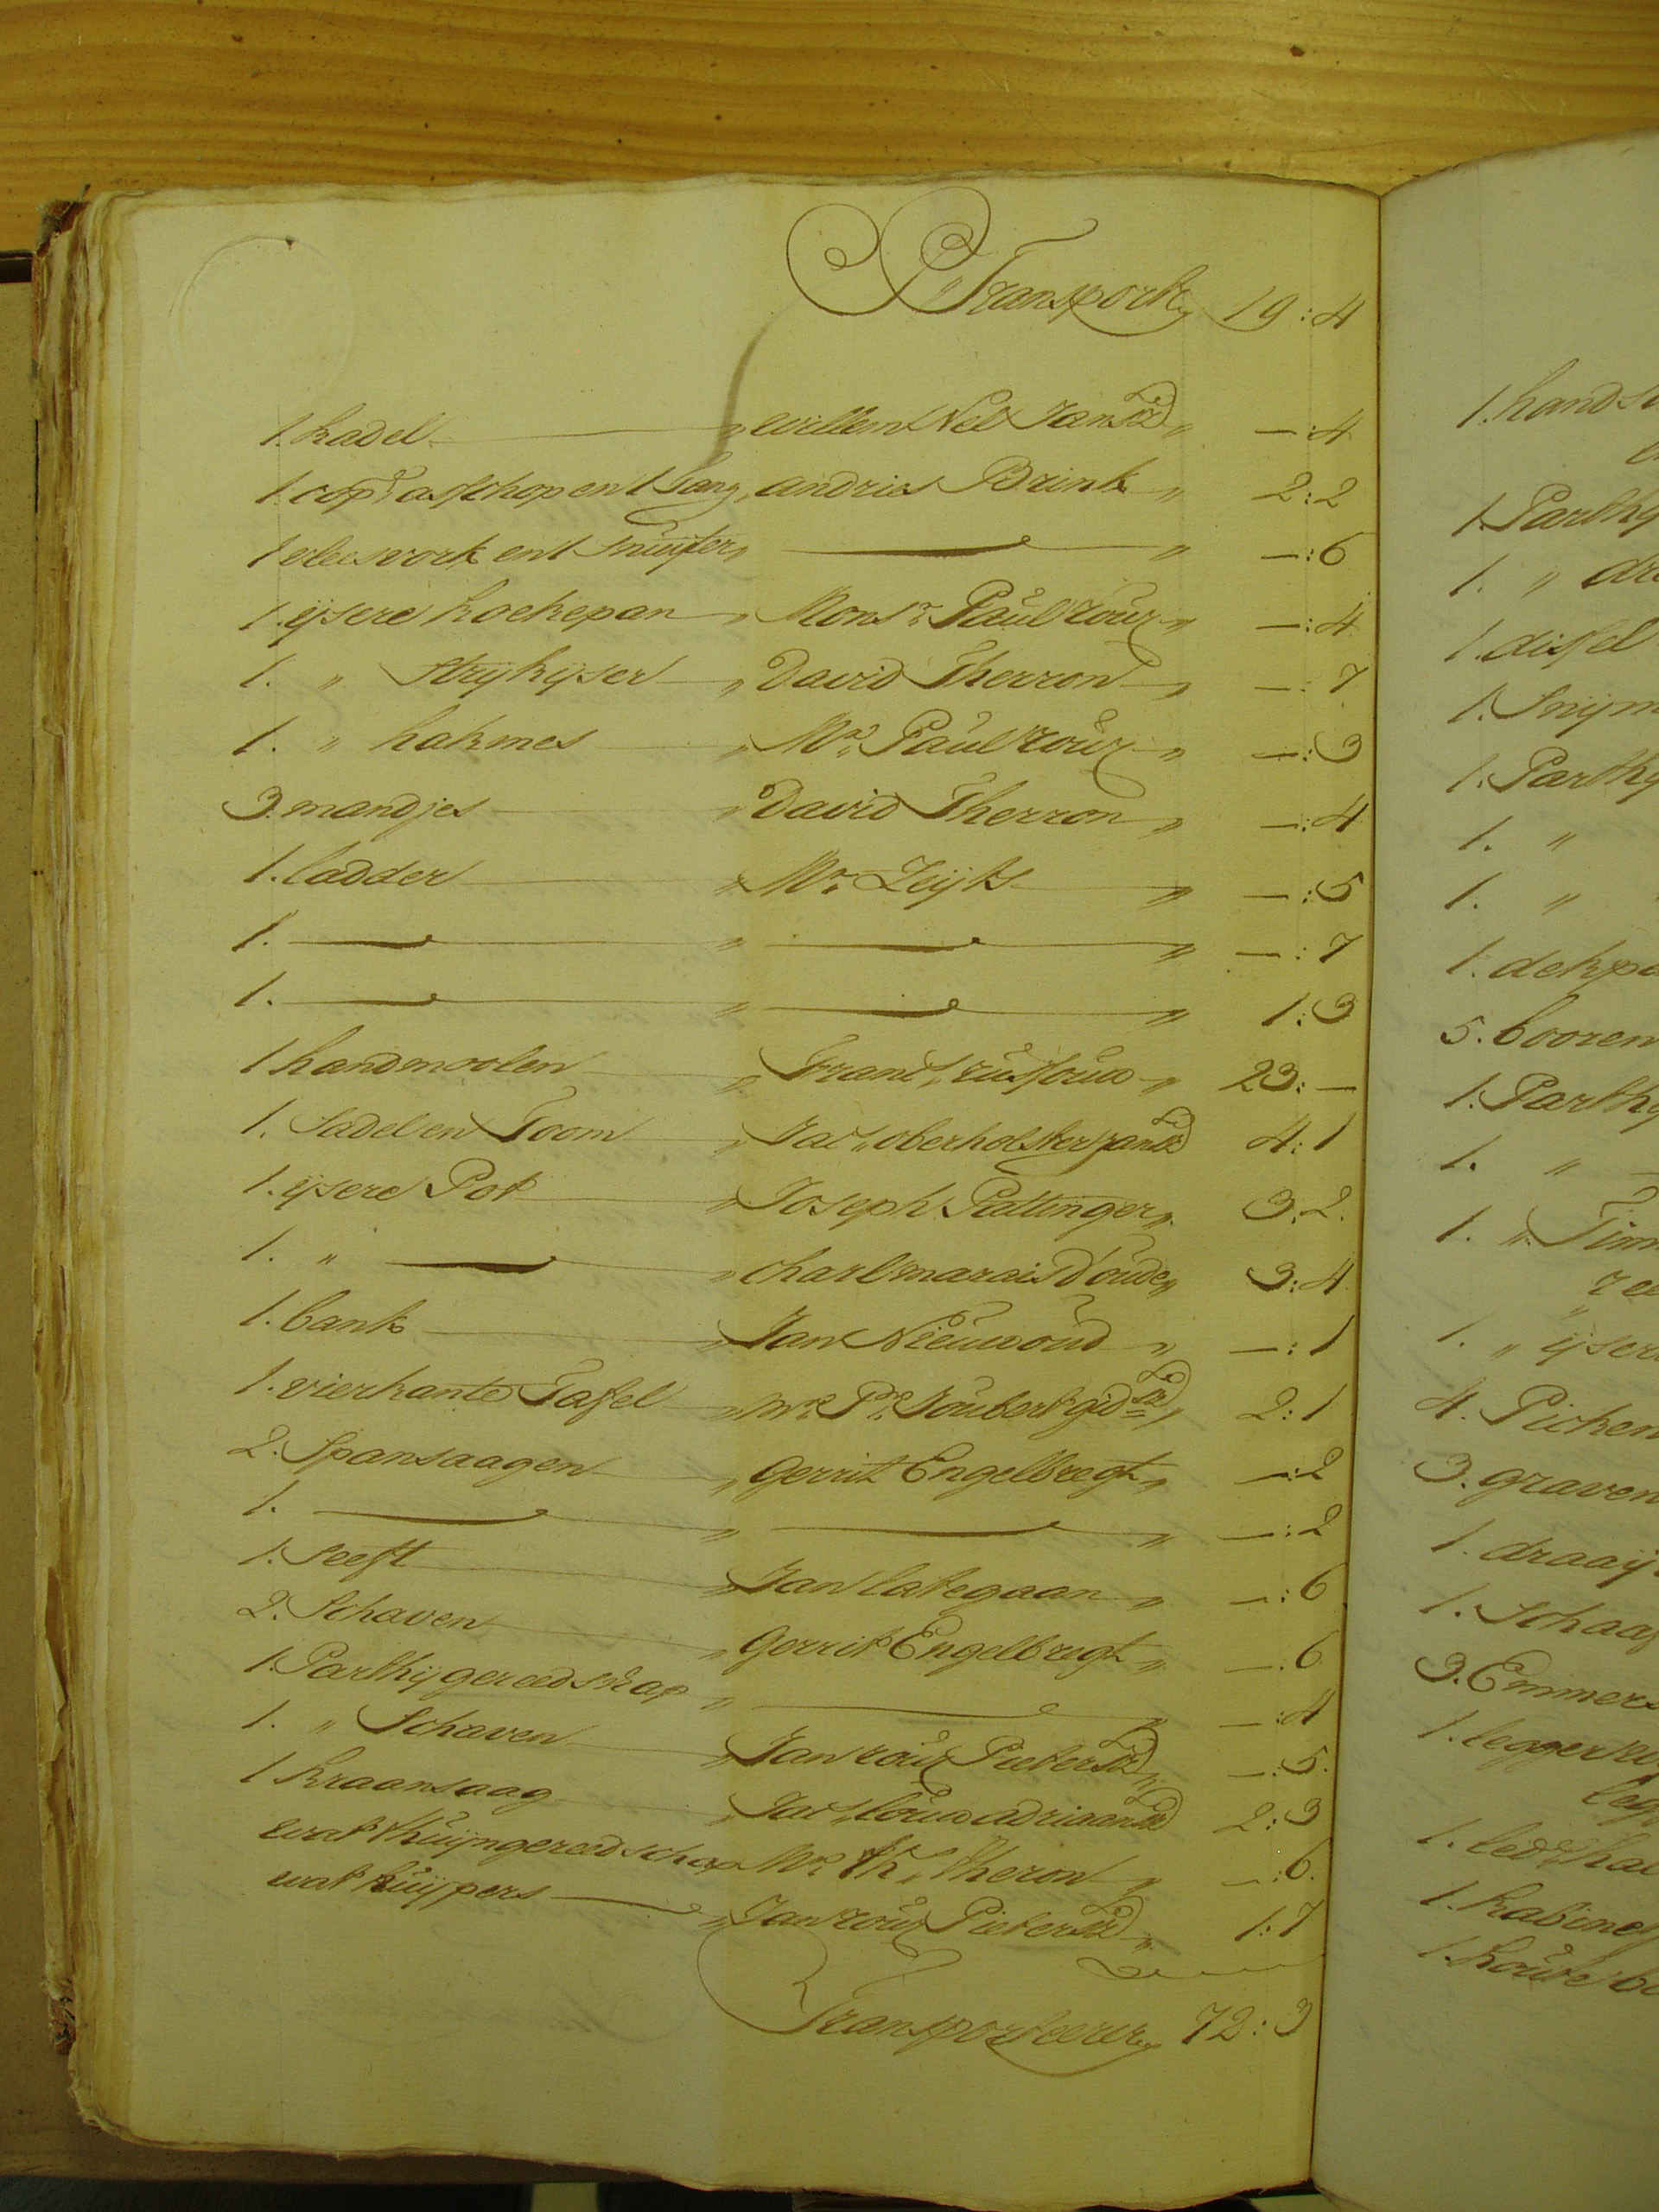 P„r Transport„ 19:4
1. kadel „ willem Nel Jansz„ —:4
1. cop„r asschop en 1 tang „ andries Brink „ 2:2
1 vleesvork en 1 snuijter „ — „ —:6
1. ijsere koekepan „ Mons:r Paul roux „ —:4
1. „ strijkijser „ David Therron „ —:7
1. „ hakmes „ M:r Paul roux „ —:3
3. mandjes „ David Therron „ —:4
1. ladder „ M:r Zeijts „ —:5
1. — „ — „ —:7
1. — „ — „ 1:3
1 handmoolen „ Frans„ russouw „ 23:—
1. Sadel en Toom „ Jac„ oberholster Jansz 4:1
1. ijsere Pot „ Joseph Pattinger „ 3:2.
1. „ — „ charl marais D'oude „ 3:4
1. bank „ Jan Nieuwoud „ —:1
1. vierkante Tafel „ M:r P:r Joubert gidsz „ 2:1
2. Spansaagen „ gerrit Engelbregt „ —:2
1. — „ — „ —:2
1. Seeft „ Jan lategaan „ —:6
2. Schaven „ Gerrit Engelbregt „ —:6
1. Parthij gereedschap „ — „ —:4
1. „ Schaven „ Jan roux Pietersz „ —:5.
1 kraansaag „ Jac„ louw adriaansz 2:3
wat thuijngereedschap M:r Th„ Theron „ —:6.
wat kuijpers — „ Jan roux Pietersz „ 1:7
Transporteere„ 72:3
1. hands
1. Parthij
1. „ dr
1. dissel
1. Snijm
1. Parthij
1. „
1. „
1. dekpa
5. booren
1. Parthij
1. „
1. „ Tim
ree
1. „ ijser
4. Picken
3. graven
1. draaij
1. Schaa
3. Emmers
1. legger
leg
1. led
1. kabinet
1. koute